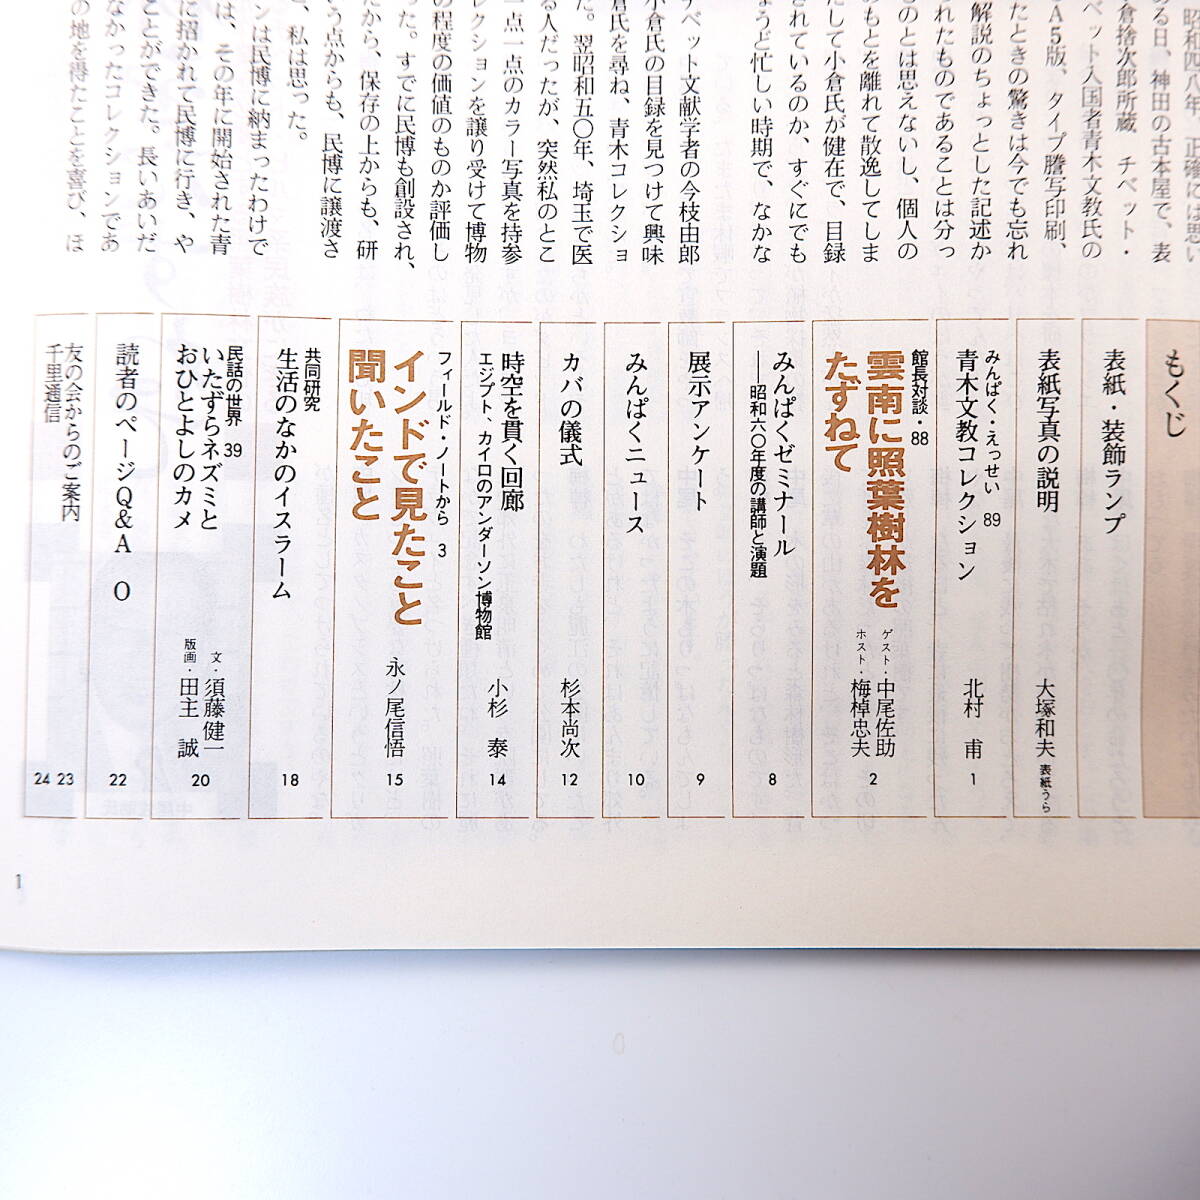 昭和四八年、正確には思い
ある日、神田の古本屋で、表
倉捨次郎所蔵　チベット・
ベット入国者青木文教氏の
A5版、タイプ謄写印刷、
たときの驚きは今でも忘れ
解説のちょっとした記述か
れたものであることは分っ
ものとは思えないし、個人の
のもとを離れて散逸してしま
たして小倉氏が健在で、目録
されているのか、すぐにでも
ょうど忙しい時期で、なかな
ベット文献学者の今枝由郎
小倉氏の目録を見つけて興味
倉氏を尋ね、青木コレクショ
た。翌昭和五〇年、埼玉で医
る人だったが、突然私のとこ
一点一点のカラー写真を持参
レクションを譲り受けて博物
の程度の価値のものか評価し
った。すでに民博も創設され、
たから、保存の上からも、研
いう点からも、民博に譲渡さ
、私は思った。
ンは民博に納まったわけで
は、その年に開始された青
に招かれて民博に行き、や
ことができた。長いあいだ
なかったコレクションであ
の地を得たことを喜び、ほ
もくじ
表紙・装飾ランプ
表紙写真の説明
大塚和夫　表紙うら
みんぱく・えっせい　89
青木文教コレクション
北村　甫　1
館長対談・88
雲南に照葉樹林を
たずねて
ゲスト・中尾佐助
ホスト・梅棹忠夫　2
みんぱくゼミナール
――昭和六〇年度の講師と演題
8
展示アンケート
9
みんぱくニュース
10
カバの儀式
杉本尚次　12
時空を貫く回廊
エジプト、カイロのアンダーソン博物館
小杉　泰　14
フィールド・ノートから　3
インドで見たこと
聞いたこと
永ノ尾信悟　15
共同研究
生活のなかのイスラーム
18
民話の世界　39
いたずらネズミと
おひとよしのカメ
文・須藤健一
版画・田主　誠　20
読者のページQ&A　O
22
友の会からのご案内　23
千里通信　24
1